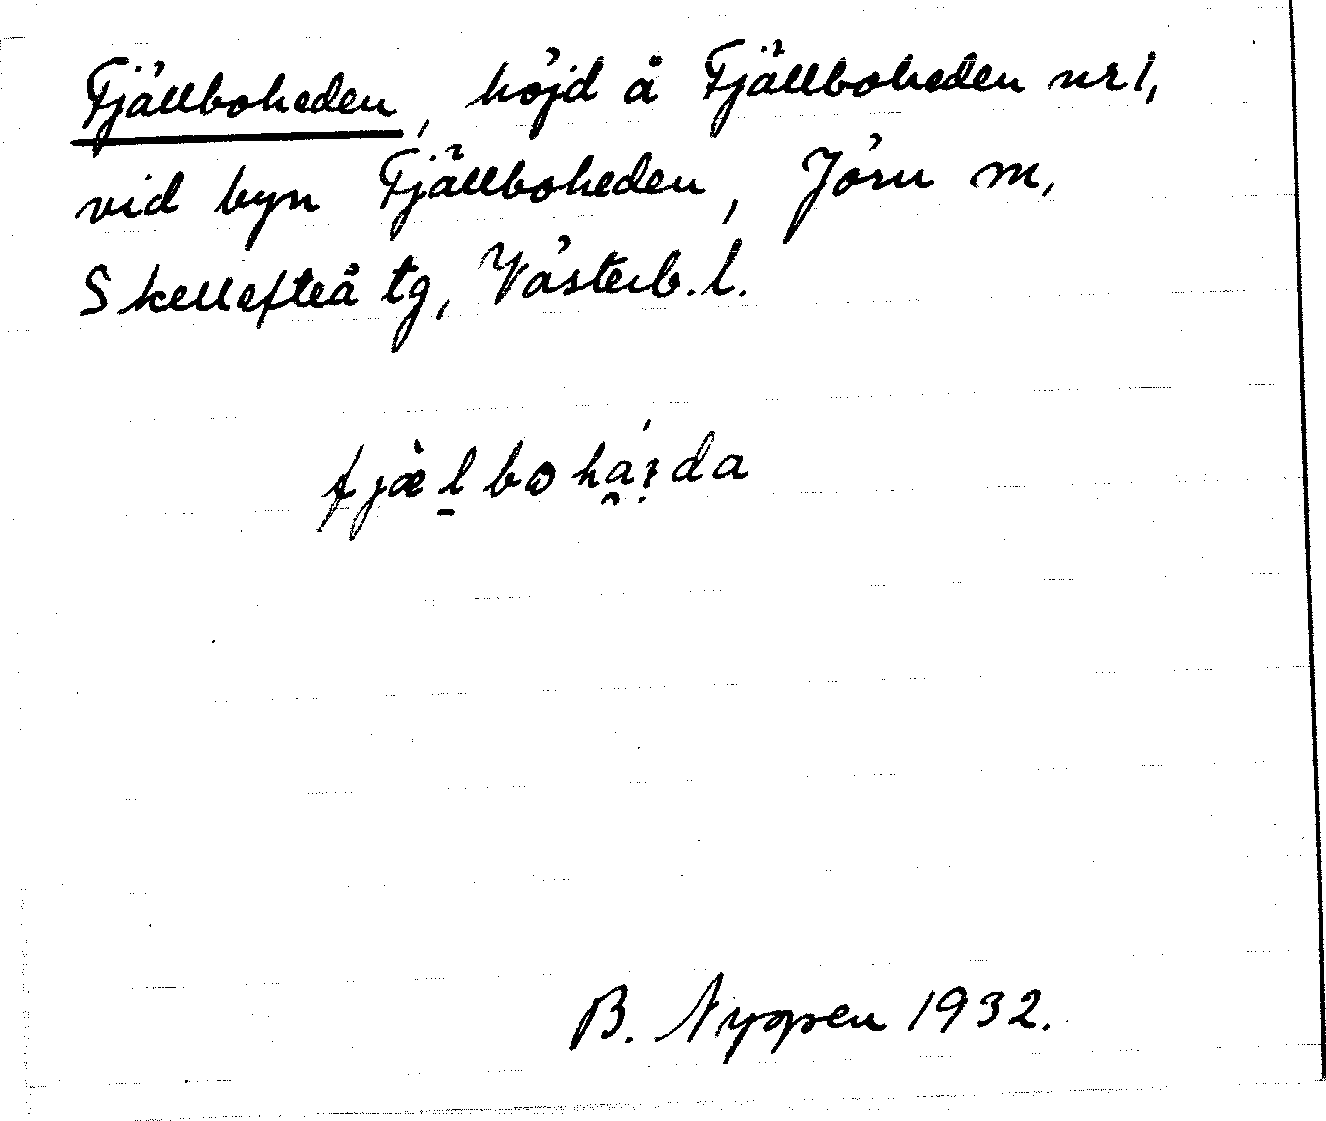 Fjällboheden, höjd å Fjällboheden nr 1,
vid byn Fjällboheden, Jörn m,
Skellefteå tg, Västerb. l.
fjæ̀l̲bohá̯i̯da
B. Nygren 1932.